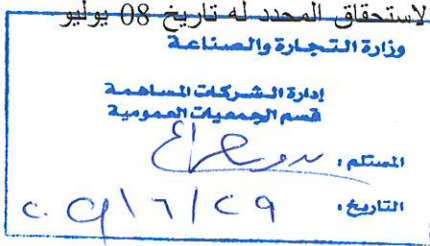 لاستحقاق المحدد له تاريخ 08 يوليو
وزارة التجارة والصناعة
إدارة الشركات المساهمة
قسم الجمعيات العمومية
المستلم:
التاريخ: ٢٩/٦/